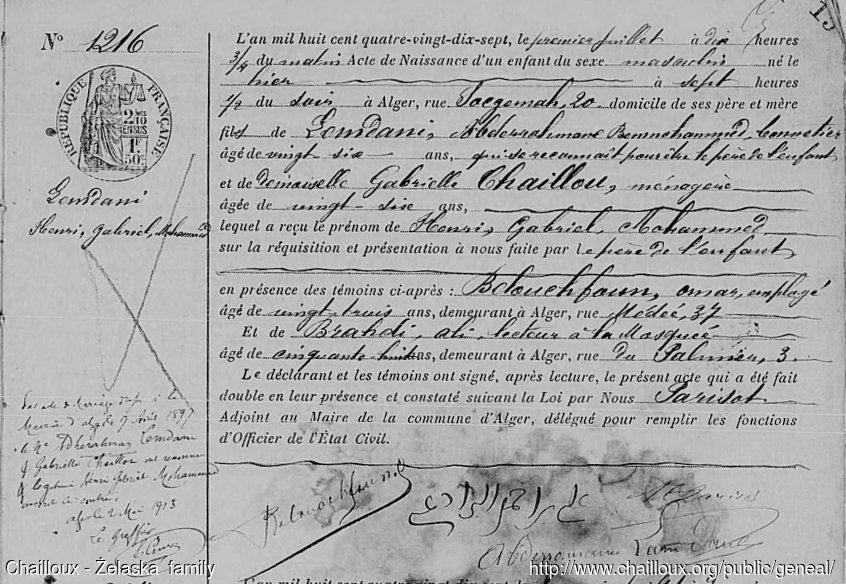 N° 1216
RÉPUBLIQUE FRANÇAISE
2 DES 10 EN SUS
1F 50c
Lemdani
Henri, Gabriel, Mohammed
L'an mil huit cent quatre-vingt-dix-sept, le premier juillet à dix heures
3/4 du matin Acte de Naissance d'un enfant du sexe masculin né le
hier à sept heures
1/2 du soir à Alger, rue 20 domicile de ses père et mère
fils de Lemdani, Abderrahmane Benmohammed,
âgé de vingt six ans, qui se reconnaît pour être le père de l'enfant
et de demoiselle Gabrielle Chaillou, ménagère
âgée de vingt-six ans,
lequel a reçu le prénom de Henri, Gabriel, Mohammed
sur la réquisition et présentation à nous faite par le père de l'enfant
en présence des témoins ci-après : omar, employé
âgé de vingt trois ans, demeurant à Alger, rue Médée, 37
Et de Brahdi, ali, lecteur à la Mosquée
âgé de cinquante huit ans, demeurant à Alger, rue du Palmier, 3
Le déclarant et les témoins ont signé, après lecture, le présent acte qui a été fait
double en leur présence et constaté suivant la Loi par Nous Parisot
Adjoint au Maire de la commune d'Alger, délégué pour remplir les fonctions
d'Officier de l'État Civil.
Mairie d'Alger le 9 Août 1897
Lemdani
Gabrielle Chaillou ont reconnu
légitimé Henri Gabriel Mohammed
ci contre,
Alger le 2 Mai 1913
Le Greffier
L'an mil huit cent quatre-vingt-dix-sept, le
Chailloux - Żelaska family
http://www.chailloux.org/public/geneal/